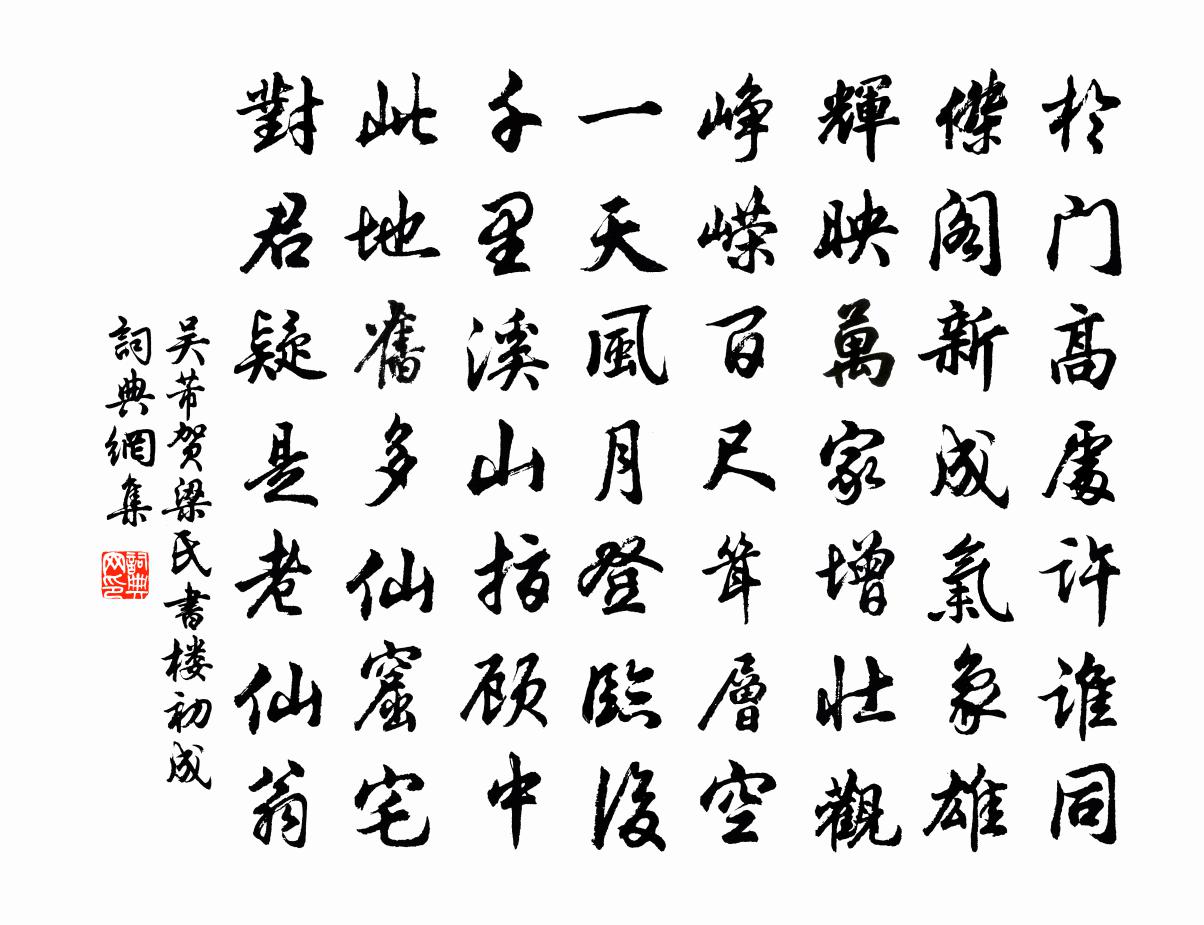 於门高處许谁同
傑阁新成氣象雄
輝映萬家增壮觀
峥嵘百尺耸層空
一天風月登臨後
千里溪山指顾中
此地舊多仙窟宅
對君疑是老仙翁
吴芾贺梁氏書楼初成
詞典網集
詞典网印